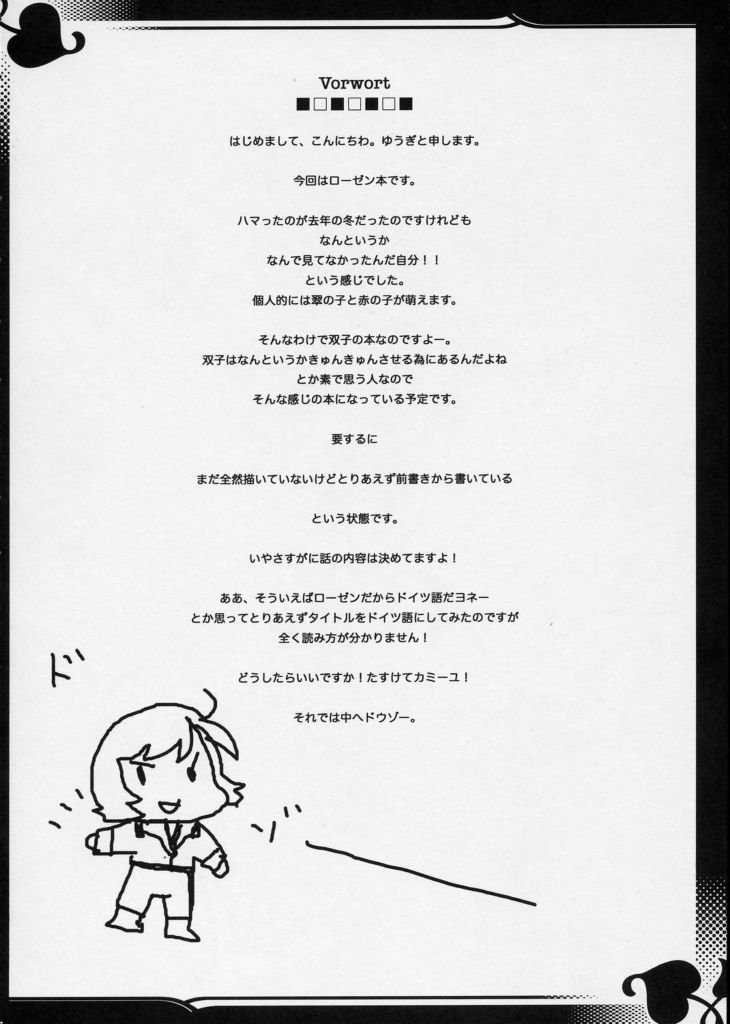 Vorwort
■□■□■□■
はじめまして、こんにちわ。ゆうぎと申します。
今回はローゼン本です。
ハマったのが去年の冬だったのですけれども
なんというか
なんで見てなかったんだ自分！！
という感じでした。
個人的には翠の子と赤の子が萌えます。
そんなわけで双子の本なのですよー。
双子はなんというかきゅんきゅんさせる為にあるんだよね
とか素で思う人なので
そんな感じの本になっている予定です。
要するに
まだ全然描いていないけどとりあえず前書きから書いている
という状態です。
いやさすがに話の内容は決めてますよ！
ああ、そういえばローゼンだからドイツ語だヨネー
とか思ってとりあえずタイトルをドイツ語にしてみたのですが
全く読み方が分かりません！
どうしたらいいですか！たすけてカミーユ！
それでは中へドウゾー。
ド
ゾ